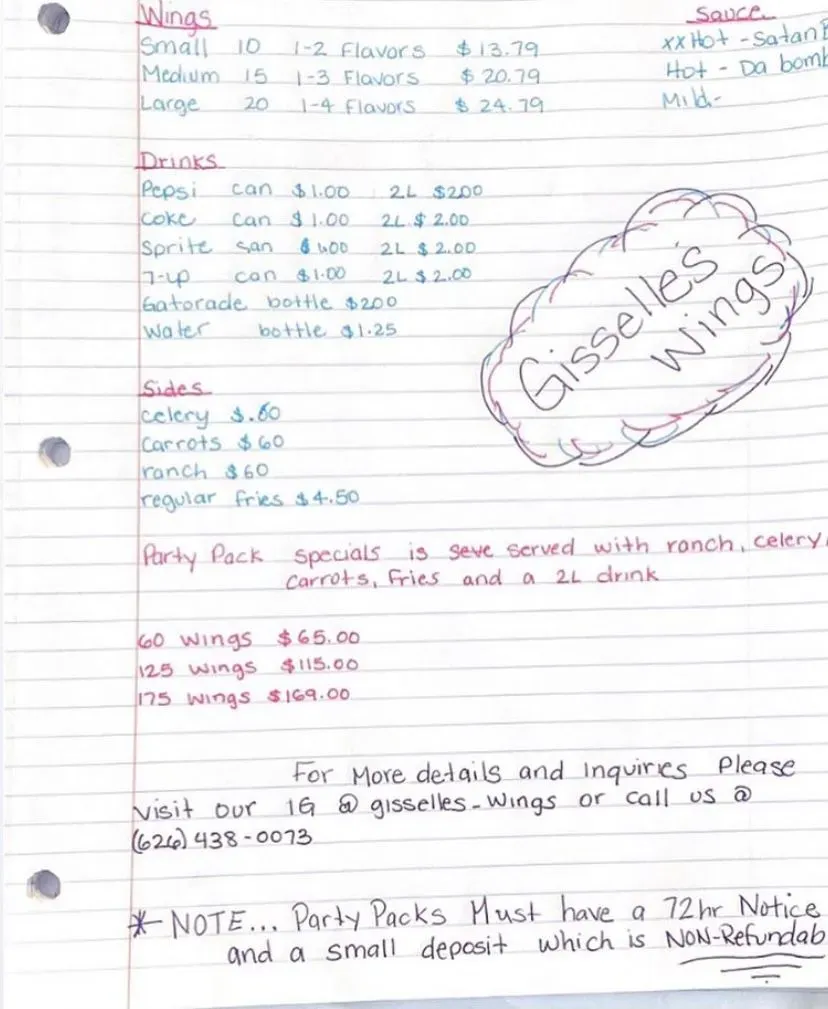 Wings
Small 10 1-2 Flavors $13.79
Medium 15 1-3 Flavors $20.79
Large 20 1-4 Flavors $24.79
Sauce
xx Hot - Satan
Hot - Da bomb
Mild-
Drinks
Pepsi can $1.00 2L $2.00
Coke can $1.00 2L $2.00
Sprite san 2L $2.00
7-up can $1.00 2L $2.00
Gatorade bottle $200
Water bottle $1.25
Gisselle's
Wings
Sides
celery $.60
Carrots $60
ranch $60
regular fries $4.50
Party Pack specials is seve served with ranch, celery,
carrots, Fries and a 2L drink
60 wings $65.00
125 wings $115.00
175 wings $169.00
For More details and inquiries Please
visit our IG @ gisselles-wings or call us @
(626) 438-0073
* NOTE... Party Packs Must have a 72hr Notice
and a small deposit which is NON-Refundab